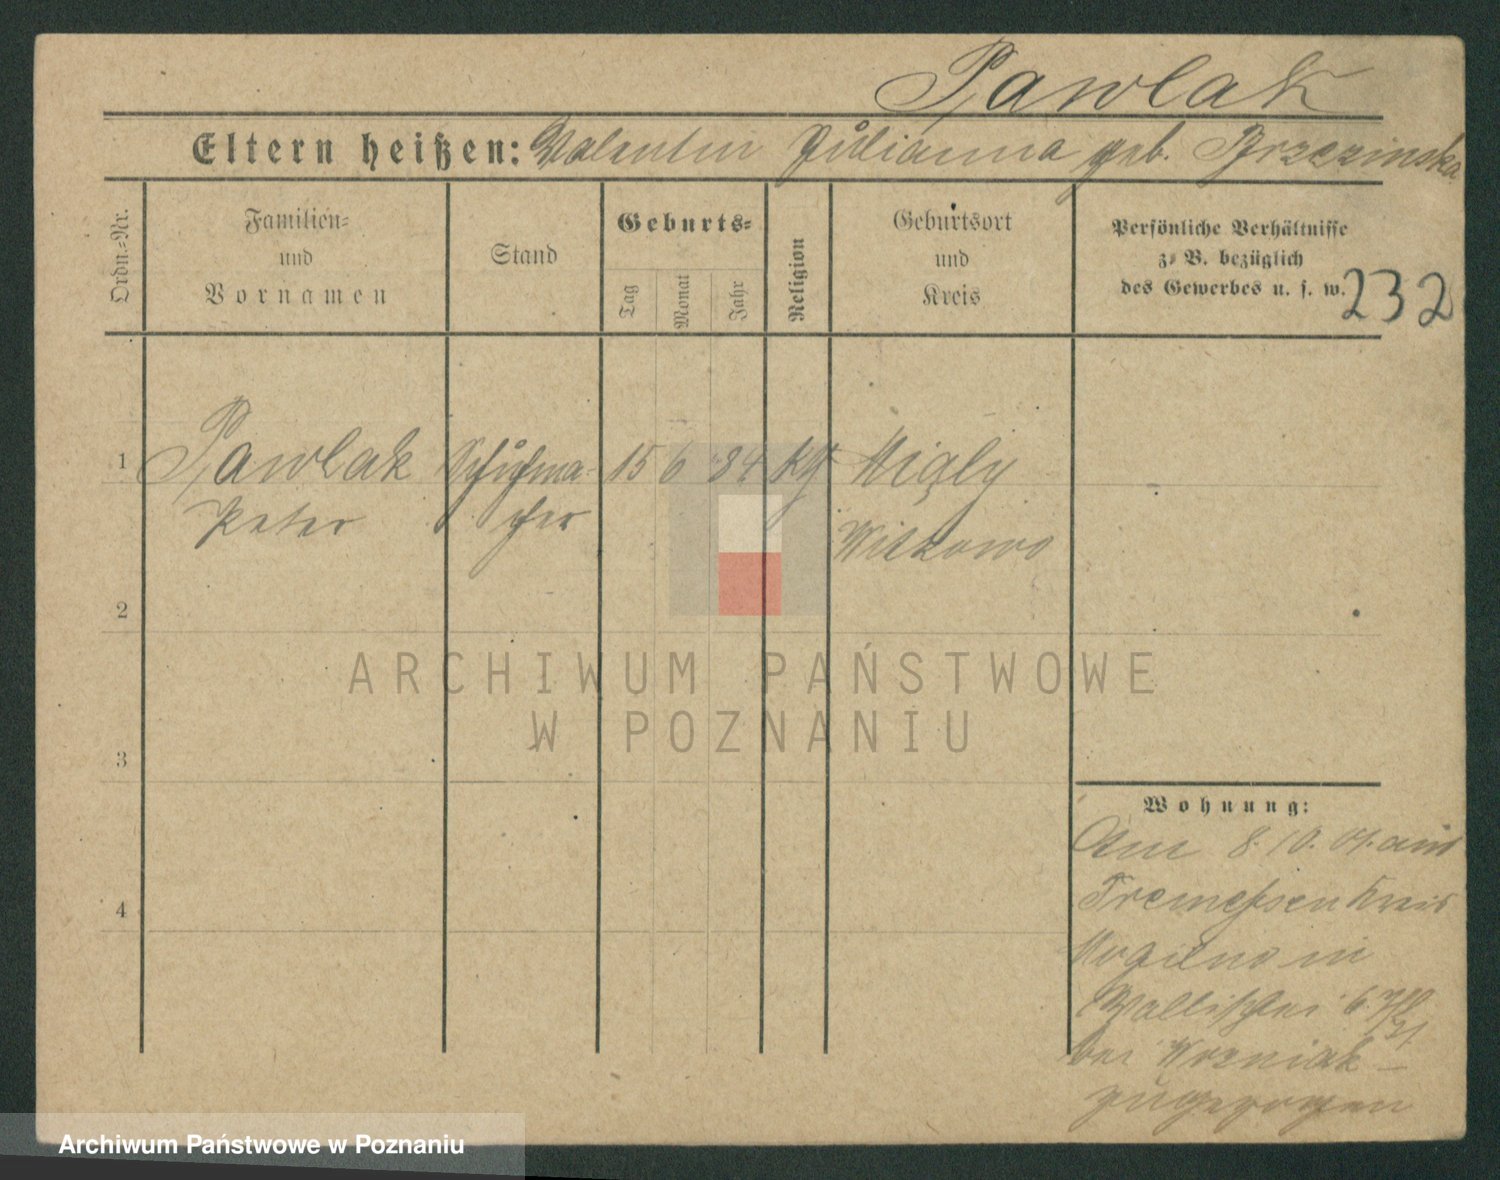 Pawlak
Eltern heißen: Valentin Julianna geb. Brzezinska
Ordn.=Nr.
Familien=
und
Vornamen
Stand
Geburts=
Tag
Monat
Jahr
Religion
Geburtsort
und
Kreis
Persönliche Verhältnisse
z. B. bezüglich
des Gewerbes u. s. w.
232
1
Pawlak
Peter
Schuhma-
cher
15 6 84 kth
Miąly
Witkowo
2
3
4
Wohnung:
Am 8.10.01. aus
Tremessen Kreis
Mogilno in
Wallischei 6
bei Wozniak
zugezogen
ARCHIWUM PAŃSTWOWE
W POZNANIU
Archiwum Państwowe w Poznaniu